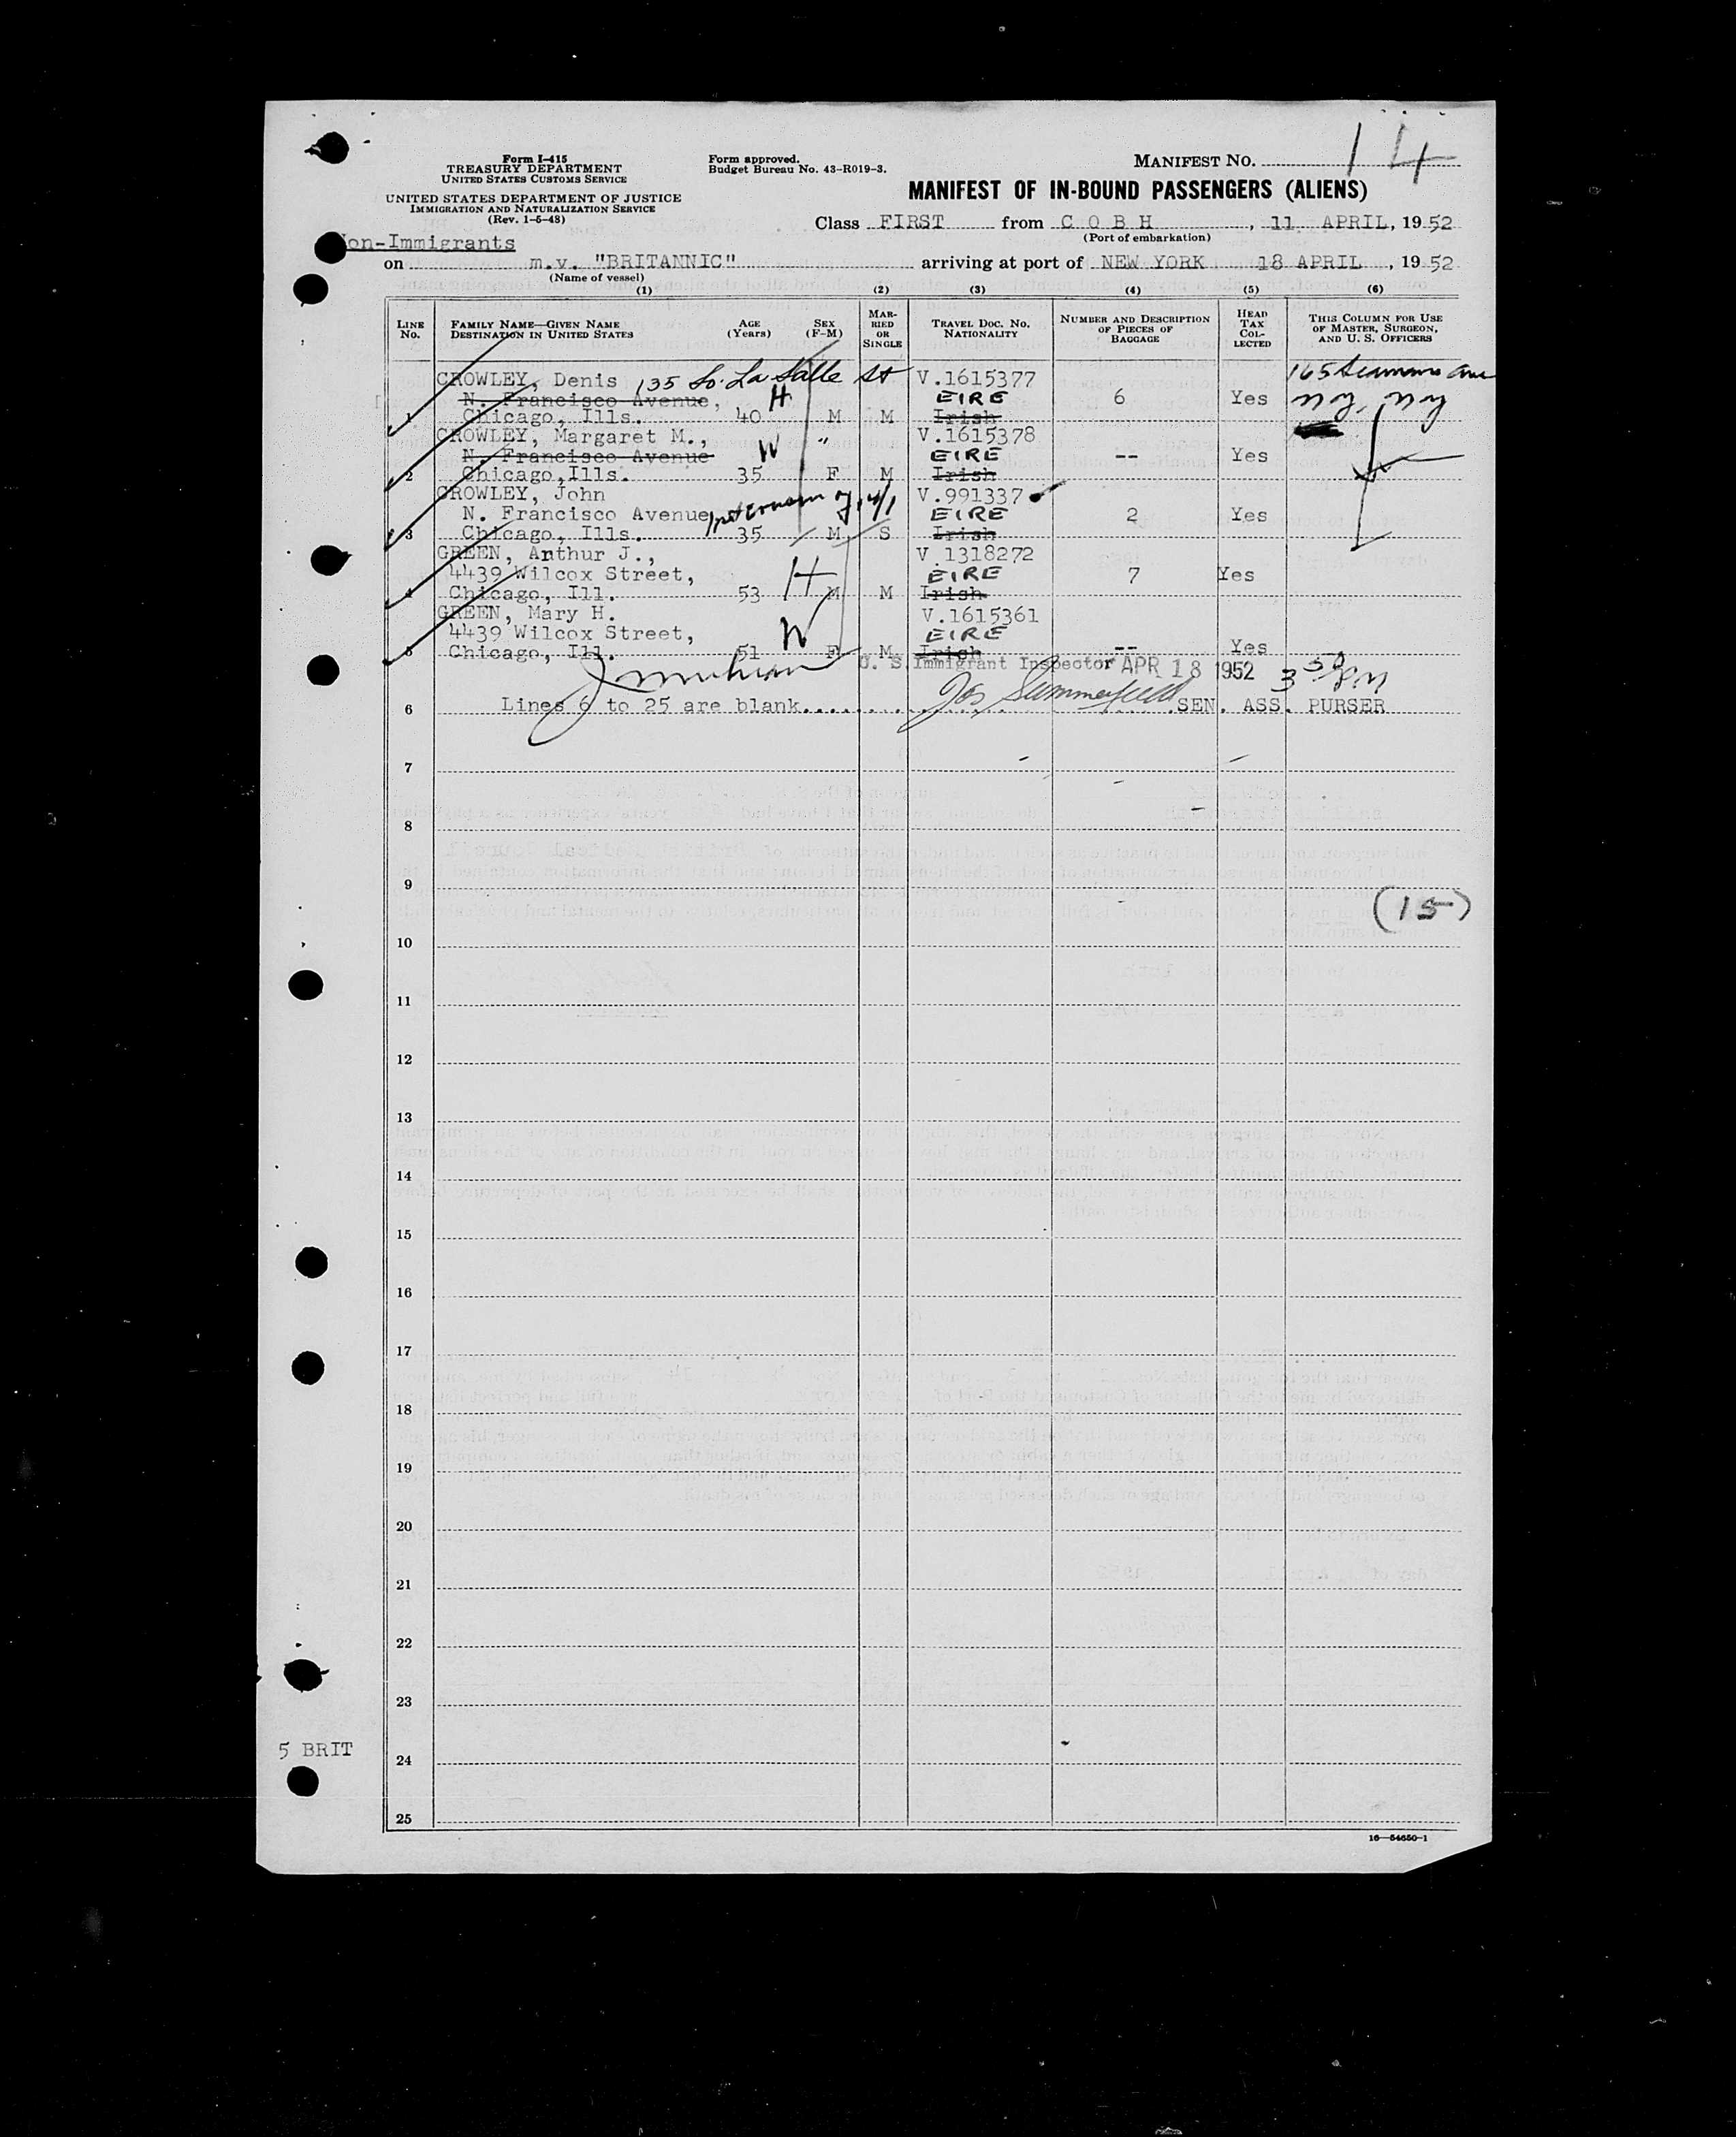 Form I-415
TREASURY DEPARTMENT
UNITED STATES CUSTOMS SERVICE
UNITED STATES DEPARTMENT OF JUSTICE
IMMIGRATION AND NATURALIZATION SERVICE
(Rev. 1-5-48)
Form approved.
Budget Bureau No. 43-R019-3.
MANIFEST NO. 14
MANIFEST OF IN-BOUND PASSENGERS (ALIENS)
Class FIRST from C O B H, 11 APRIL, 1952
(Port of embarkation)
on-Immigrants
on m.v. "BRITANNIC" arriving at port of NEW YORK 18 APRIL, 1952
(Name of vessel)
(1) (2) (3) (4) (5) (6)
LINE NO.
FAMILY NAME—GIVEN NAME
DESTINATION IN UNITED STATES
AGE (Years)
SEX (F-M)
MARRIED OR SINGLE
TRAVEL DOC. NO.
NATIONALITY
NUMBER AND DESCRIPTION OF PIECES OF BAGGAGE
HEAD TAX COLLECTED
THIS COLUMN FOR USE OF MASTER, SURGEON, AND U. S. OFFICERS
CROWLEY, Denis 135 So. La Salle St V.1615377 165 Ave
N. Francisco Avenue, H EIRE 6 Yes NY, NY
1 Chicago, Ills. 40 M M Irish
CROWLEY, Margaret M., " V.1615378
N. Francisco Avenue W EIRE -- Yes
2 Chicago, Ills. 35 F M Irish
CROWLEY, John V.991337
N. Francisco Avenue EIRE 2 Yes
3 Chicago, Ills. 35 M S Irish
GREEN, Arthur J., V.1318272
4439 Wilcox Street, H EIRE 7 Yes
4 Chicago, Ill. 53 M M Irish
GREEN, Mary H. V.1615361
4439 Wilcox Street, W EIRE
5 Chicago, Ill. 51 F M Irish -- Yes
U. S. Immigrant Inspector APR 18 1952
Jos Summerfield
6 Lines 6 to 25 are blank.......... SEN. ASS. PURSER
7
8
9
(15)
10
11
12
13
14
15
16
17
18
19
20
21
22
23
5 BRIT
24
25
16—54650-1